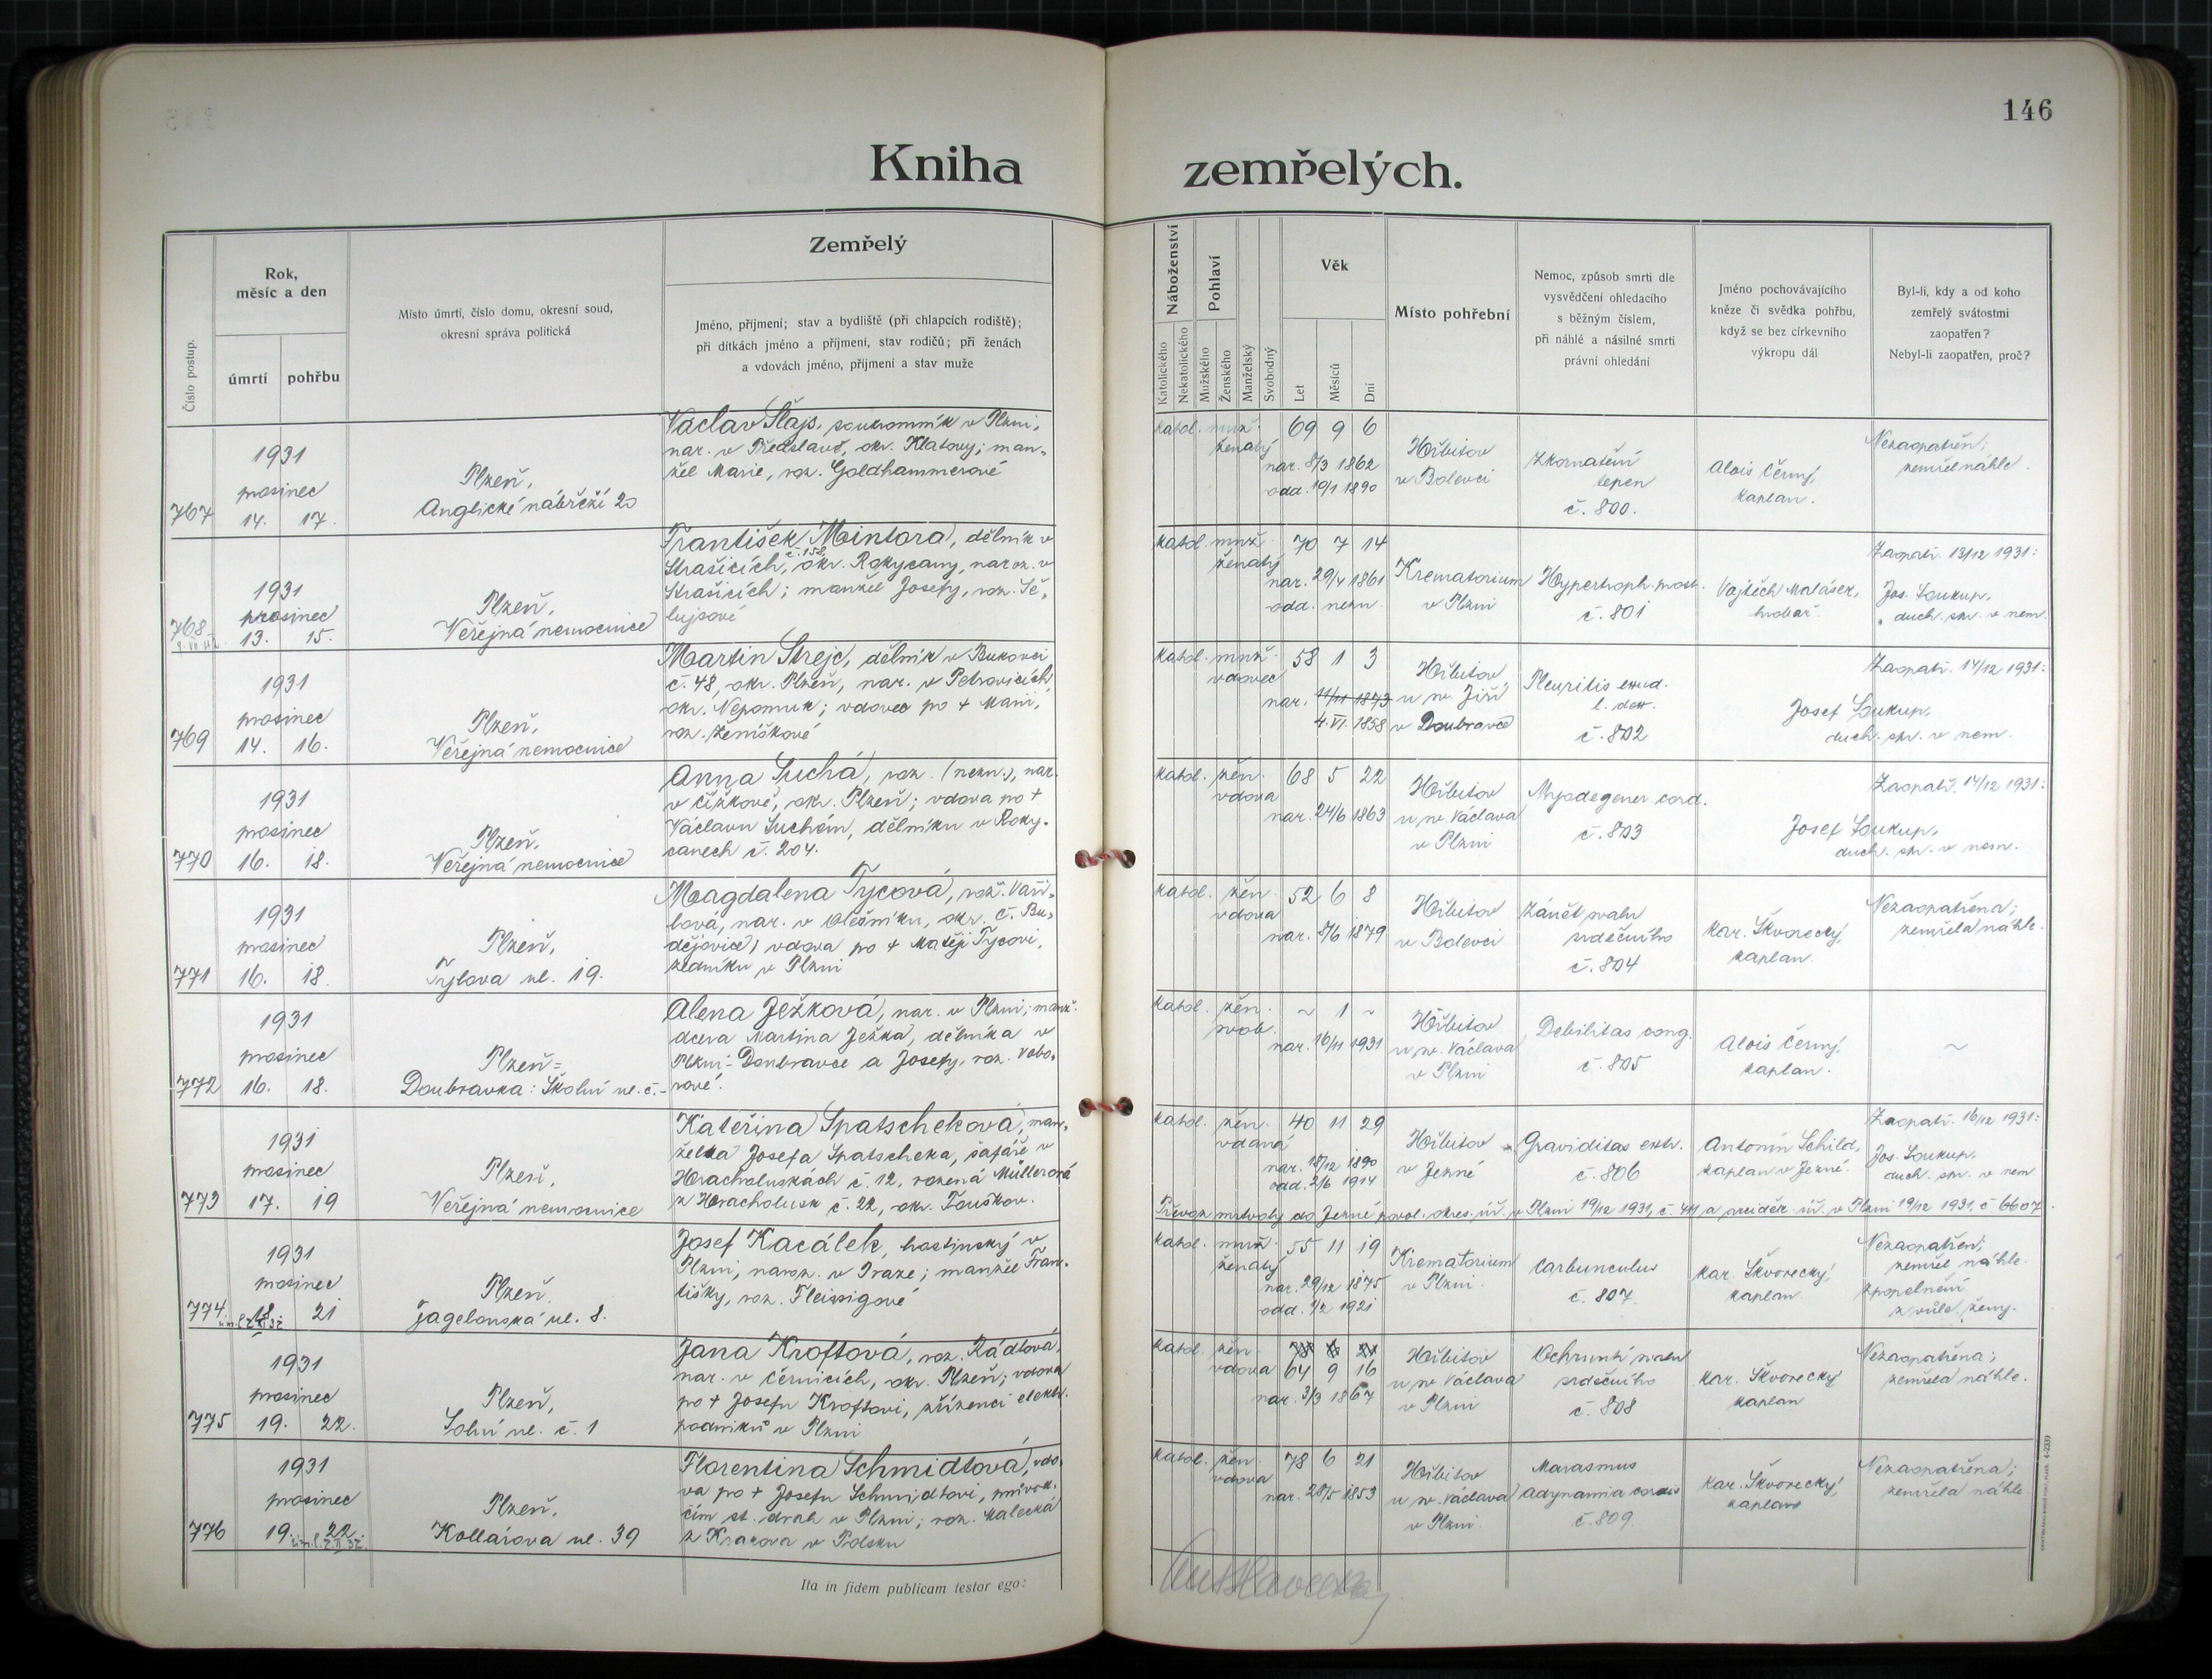 146
Kniha zemřelých.
Číslo postup.
Rok,
měsíc a den
úmrtí
pohřbu
Místo úmrtí, číslo domu, okresní soud,
okresní správa politická
Zemřelý
Jméno, příjmení; stav a bydliště (při chlapcích rodiště);
při dítkách jméno a příjmení, stav rodičů; při ženách
a vdovách jméno, příjmení a stav muže
Náboženství
Katolického
Nekatolického
Pohlaví
Mužského
Ženského
Manželský
Svobodný
Věk
Let
Měsíců
Dní
Místo pohřební
Nemoc, způsob smrti dle
vysvědčení ohledacího
s běžným číslem,
při náhlé a násilné smrti
právní ohledání
Jméno pochovávajícího
kněze či svědka pohřbu,
když se bez církevního
výkropu dál
Byl-li, kdy a od koho
zemřelý svátostmi
zaopatřen?
Nebyl-li zaopatřen, proč?
767
1931
prosinec
14. 17.
Plzeň,
Anglické nábřeží 20
Václav Šlajs, soukromník v Plzni,
nar. v Předslavi, okr. Klatovy; man-
žel Marie, roz. Goldhammerové
katol. muž. 69 9 6
ženatý
nar. 8/3 1862
odd. 19/1 1890
Hřbitov
v Bolevci
Zkornatění
tepen
č. 800.
Alois Černý,
kaplan.
Nezaopatřen;
zemřel náhle.
768
1931
prosinec
13. 15.
Plzeň,
Veřejná nemocnice
František Mintora, dělník v
Strašicích, č. 158, okr. Rokycany, naroz. v
Strašicích; manžel Josefy, roz. Še-
lujsové
katol. muž. 70 7 14
ženatý
nar. 29/4 1861
odd. nezn.
Krematorium
v Plzni
Hypertroph. prost.
č. 801
Vojtěch Malásek,
hrobař.
Zaopatř. 13/12 1931:
Jos. Soukup,
duch. spr. v nem.
769
1931
prosinec
14. 16.
Plzeň,
Veřejná nemocnice
Martin Strejc, dělník v Bukovci
č. 48, okr. Plzeň, nar. v Petrovicích,
okr. Nepomuk; vdovec po + Marii,
roz. Zemiškové
katol. muž. 58 1 3
vdovec
nar. 11/11 1873
4. VI. 1858
Hřbitov
u sv. Jiří
v Doubravce
Pleuritis exsud.
l. dex.
č. 802
Josef Soukup,
duch. spr. v nem.
Zaopatř. 14/12 1931:
770
1931
prosinec
16. 18.
Plzeň,
Veřejná nemocnice
Anna Suchá, roz. (nezn.), nar.
v Čižkově, okr. Plzeň; vdova po +
Václavu Suchém, dělníku v Roky-
canech č. 204.
katol. žen. 68 5 22
vdova
nar. 24/6 1863
Hřbitov
u sv. Václava
v Plzni
Myodegener. cord.
č. 803
Josef Soukup,
duch. spr. v nem.
Zaopatř. 14/12 1931:
771
1931
prosinec
16. 18.
Plzeň,
Tylova ul. 19.
Magdalena Tycová, roz. Vaři-
lová, nar. v Olešníku, okr. Č. Bu-
dějovice; vdova po + Matěji Tycovi,
zedníku v Plzni
katol. žen. 52 6 8
vdova
nar. 8/6 1879
Hřbitov
v Bolevci
Zánět svalu
srdečního
č. 804
Kar. Škvorecký,
kaplan.
Nezaopatřena;
zemřela náhle.
772
1931
prosinec
16. 18.
Plzeň-
Doubravka: Školní ul. č. -
Alena Ježková, nar. v Plzni; manž.
dcera Martina Ježka, dělníka v
Plzni-Doubravce a Josefy, roz. Vobo-
rové.
katol. žen. ~ 1 ~
svob.
nar. 16/11 1931
Hřbitov
u sv. Václava
v Plzni
Debilitas cong.
č. 805
Alois Černý,
kaplan.
~
773
1931
prosinec
17. 19
Plzeň,
Veřejná nemocnice
Kateřina Spatscheková, man-
želka Josefa Spatscheka, šafáře v
Hracholuskách č. 12, rozená Müllerová
z Hracholusk č. 22, okr. Touškov.
katol. žen. 40 11 29
vdaná
nar. 18/12 1890
odd. 2/6 1914
Hřbitov
v Jezné
Graviditas extr.
č. 806
Antonín Schild,
kaplan v Jezné.
Zaopatř. 16/12 1931:
Jos. Soukup,
duch. spr. v nem.
Převoz mrtvoly do Jezné povol. okres. úř. v Plzni 19/12 1931, č. 411 a arciděk. úř. v Plzni 19/12 1931, č. 6607.
774
1931
prosinec
18. 21
Plzeň,
Jagelonská ul. 8.
Josef Kacálek, hostinský v
Plzni, naroz. v Praze; manžel Fran-
tišky, roz. Fleissigové
katol. muž. 55 11 19
ženatý
nar. 29/12 1875
odd. 1/2 1921
Krematorium
v Plzni.
Carbunculus
č. 807.
Kar. Škvorecký,
kaplan.
Nezaopatřen;
zemřel náhle.
Zpopelnění
z vůle ženy.
775
1931
prosinec
19. 22.
Plzeň,
Solní ul. č. 1
Jana Kroftová, roz. Rádlová,
nar. v Černicích, okr. Plzeň; vdova
po + Josefu Kroftovi, zřízenci elektr.
podniků v Plzni
katol. žen. 78 6 21
vdova 64 9 16
nar. 3/3 1867
Hřbitov
u sv. Václava
v Plzni
Ochrnutí svalu
srdečního
č. 808
Kar. Škvorecký
kaplan
Nezaopatřena;
zemřela náhle.
776
1931
prosinec
19. 22.
Plzeň,
Kollárova ul. 39
Florentina Schmidtová, vdo-
va po + Josefu Schmidtovi, průvod-
čím st. drah v Plzni; roz. Malecká
z Krakova v Polsku
katol. žen. 78 6 21
vdova
nar. 28/5 1853
Hřbitov
u sv. Václava
v Plzni.
Marasmus
Adynamia cordis
č. 809.
Kar. Škvorecký,
kaplan
Nezaopatřena;
zemřela náhle
Ita in fidem publicam testor ego: